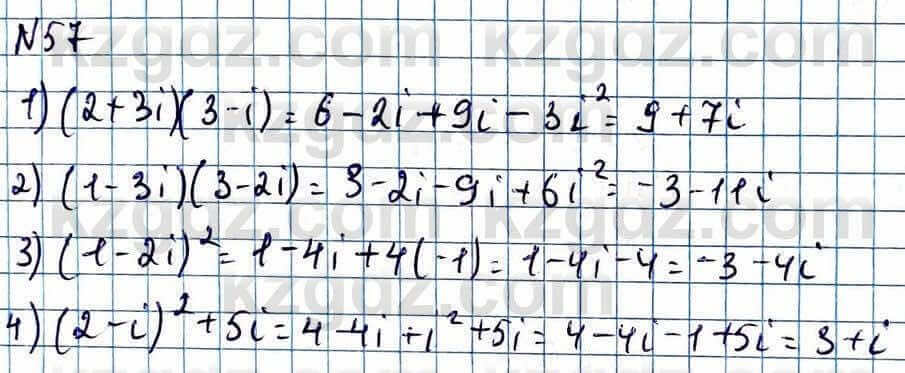 N57
1) (2+3i)(3-i) = 6-2i+9i-3i² = 9+7i
2) (1-3i)(3-2i) = 3-2i-9i+6i² = -3-11i
3) (1-2i)² = 1-4i+4(-1) = 1-4i-4 = -3-4i
4) (2-i)²+5i = 4-4i+i²+5i = 4-4i-1+5i = 3+i
kzgdz.com kzgdz.com
kzgdz.com
kzgdz.com kzgdz.com
kzgdz.com